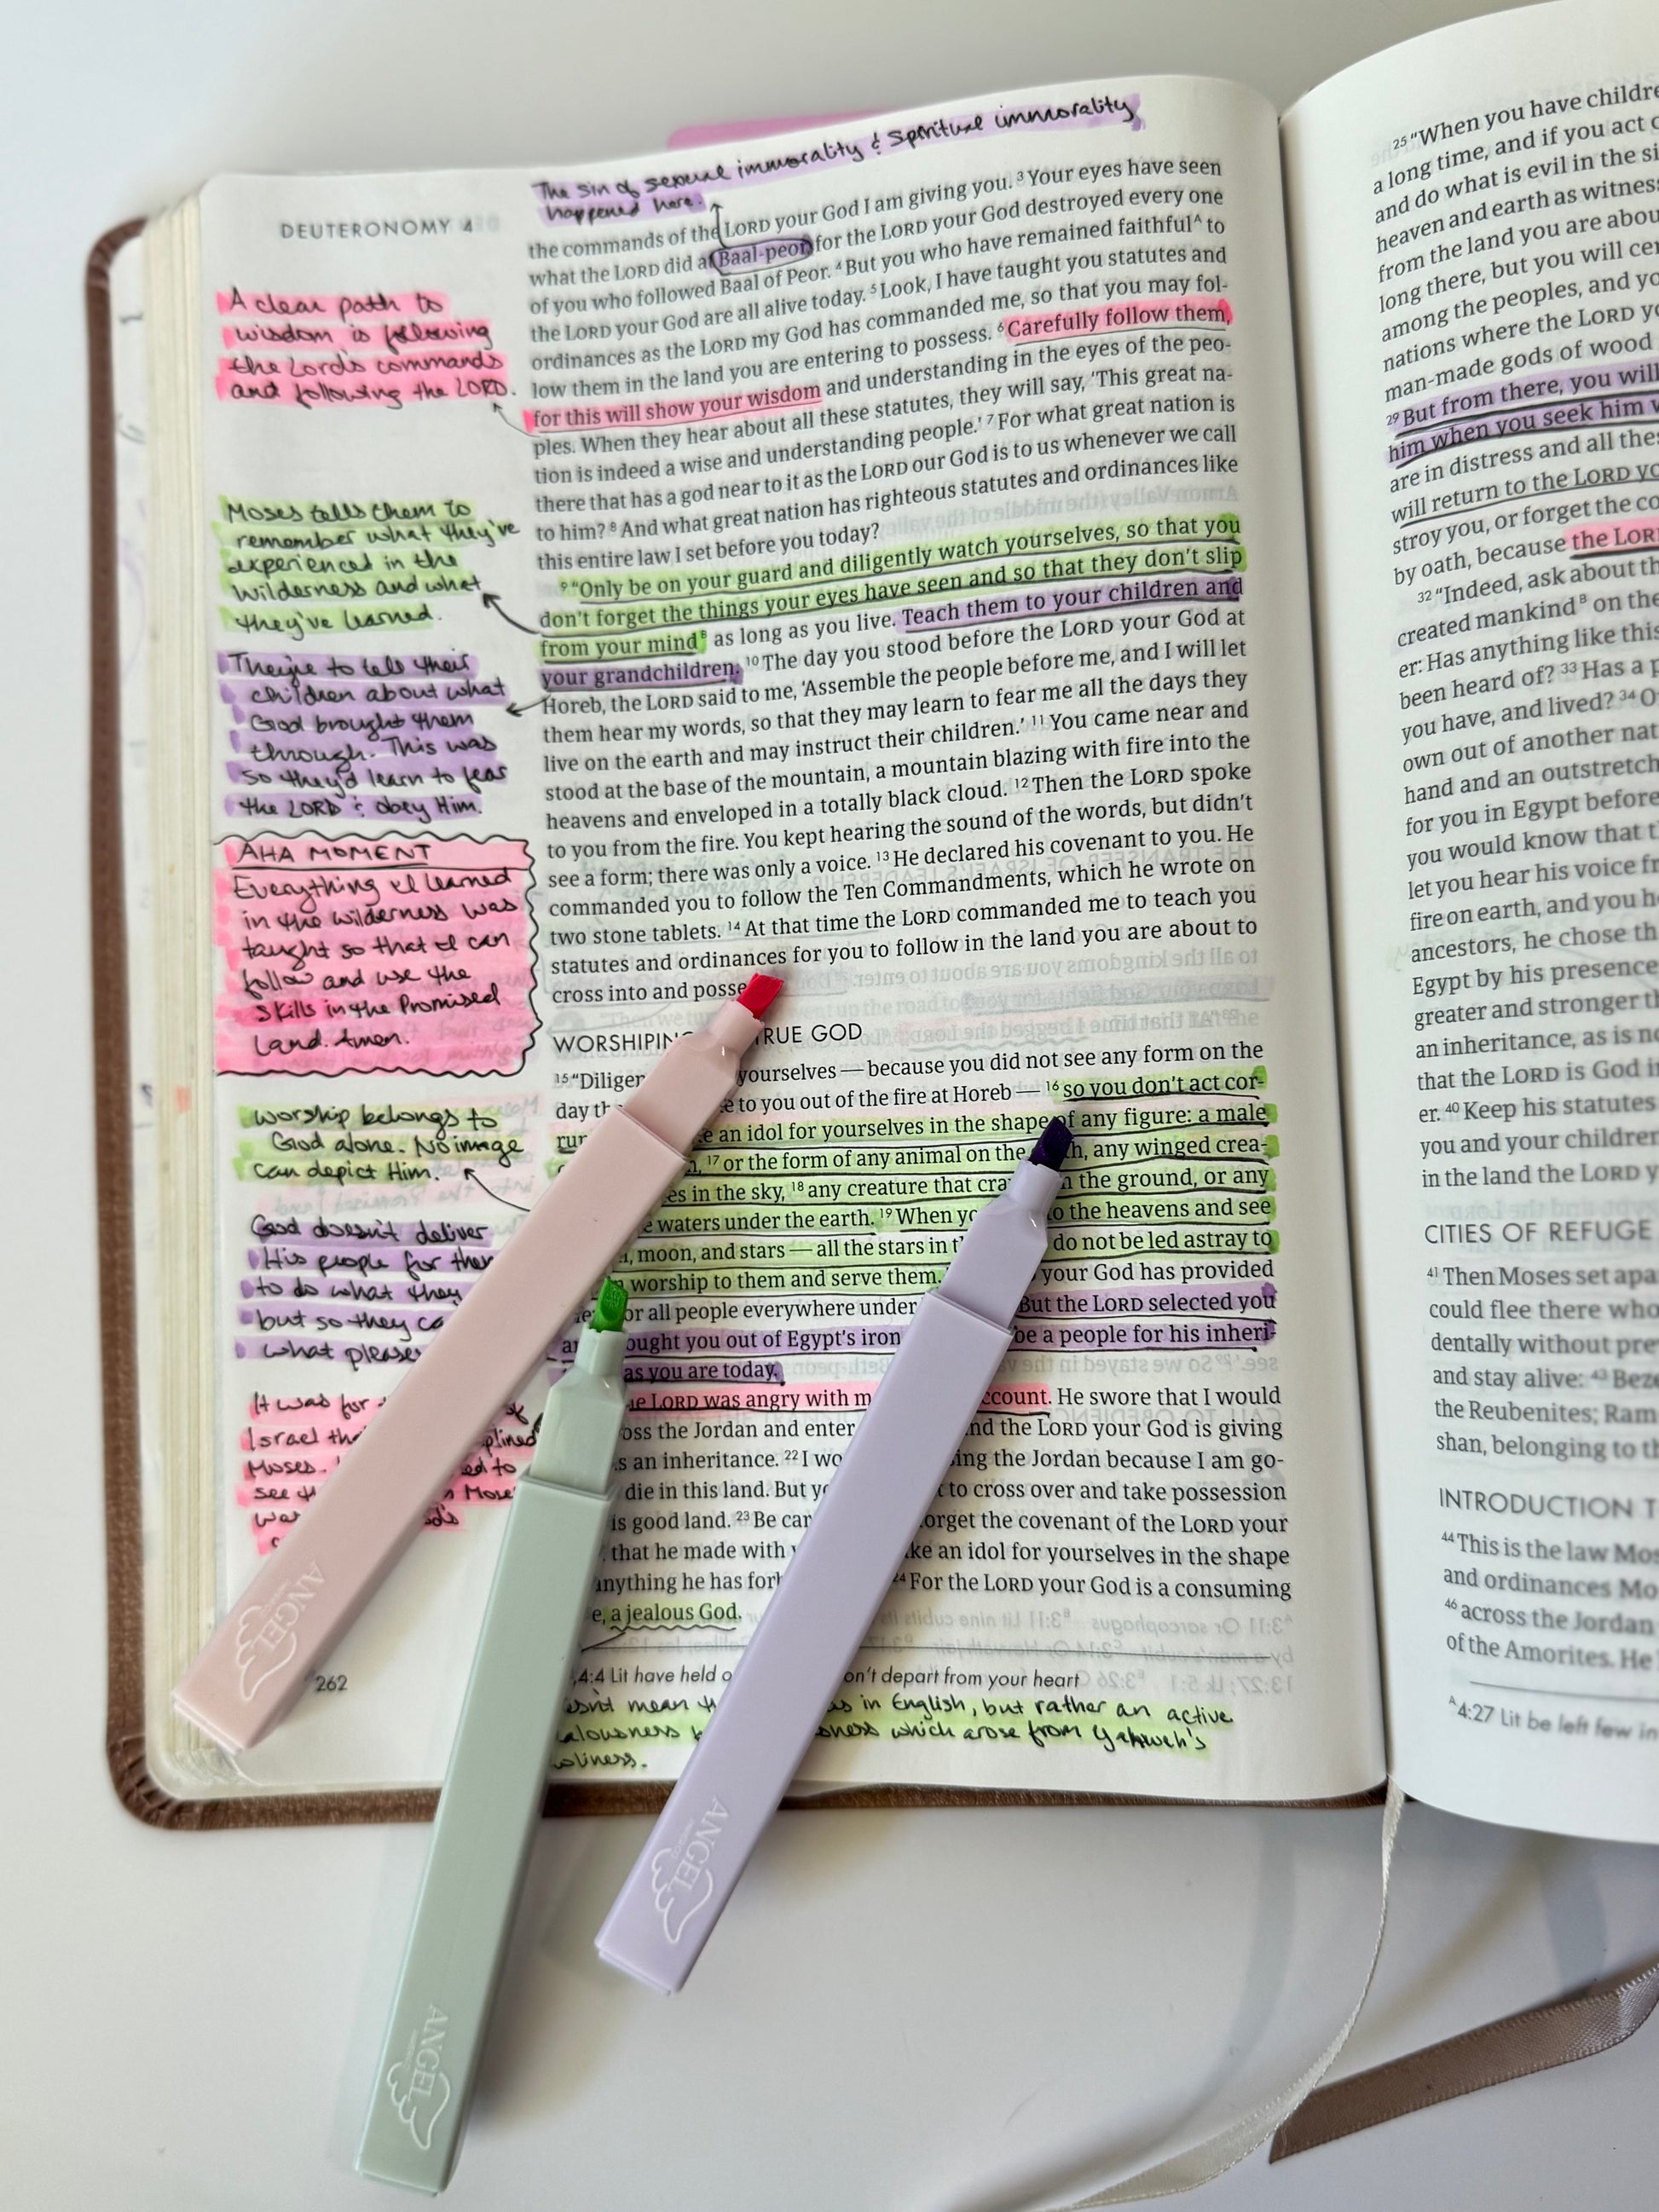 The sin of sexual immorality & spiritual immorality
happened here.
DEUTERONOMY 4
the commands of the LORD your God I am giving you. 3 Your eyes have seen
what the LORD did at Baal-peor, for the LORD your God destroyed every one
of you who followed Baal of Peor. 4 But you who have remained faithful A to
the LORD your God are all alive today. 5 Look, I have taught you statutes and
ordinances as the LORD my God has commanded me, so that you may fol-
low them in the land you are entering to possess. 6 Carefully follow them,
for this will show your wisdom and understanding in the eyes of the peo-
ples. When they hear about all these statutes, they will say, 'This great na-
tion is indeed a wise and understanding people.' 7 For what great nation is
there that has a god near to it as the LORD our God is to us whenever we call
to him? 8 And what great nation has righteous statutes and ordinances like
this entire law I set before you today?
9 "Only be on your guard and diligently watch yourselves, so that you
don't forget the things your eyes have seen and so that they don't slip
from your mind B as long as you live. Teach them to your children and
your grandchildren. 10 The day you stood before the LORD your God at
Horeb, the LORD said to me, 'Assemble the people before me, and I will let
them hear my words, so that they may learn to fear me all the days they
live on the earth and may instruct their children.' 11 You came near and
stood at the base of the mountain, a mountain blazing with fire into the
heavens and enveloped in a totally black cloud. 12 Then the LORD spoke
to you from the fire. You kept hearing the sound of the words, but didn't
see a form; there was only a voice. 13 He declared his covenant to you. He
commanded you to follow the Ten Commandments, which he wrote on
two stone tablets. 14 At that time the LORD commanded me to teach you
statutes and ordinances for you to follow in the land you are about to
cross into and posse
WORSHIPING RUE GOD
15 "Diligen yourselves — because you did not see any form on the
day th e to you out of the fire at Horeb — 16 so you don't act cor-
rup e an idol for yourselves in the shape of any figure: a male
17 or the form of any animal on the h, any winged crea-
es in the sky, 18 any creature that cra n the ground, or any
e waters under the earth. 19 When yo o the heavens and see
moon, and stars — all the stars in t do not be led astray to
worship to them and serve them. your God has provided
or all people everywhere under But the LORD selected you
ought you out of Egypt's iron be a people for his inheri-
as you are today.
e LORD was angry with m ccount. He swore that I would
oss the Jordan and enter nd the LORD your God is giving
s an inheritance. 22 I wo ing the Jordan because I am go-
die in this land. But yo t to cross over and take possession
is good land. 23 Be car orget the covenant of the LORD your
that he made with ke an idol for yourselves in the shape
anything he has forb 24 For the LORD your God is a consuming
e, a jealous God.
4:4 Lit have held o on't depart from your heart
esn't mean th as in English, but rather an active
alousness ousness which arose from Yahweh's
oliness.
262
A clear path to
wisdom is following
the Lord's commands
and following the LORD.
Moses tells them to
remember what they've
experienced in the
wilderness and what
they've learned.
They're to tell their
children about what
God brought them
through. This was
so they'd learn to fear
the LORD & obey Him.
AHA MOMENT
Everything I learned
in the wilderness was
taught so that I can
follow and use the
skills in the Promised
Land. Amen.
Worship belongs to
God alone. No image
can depict Him.
God doesn't deliver
His people for them
to do what they
but so they ca
what pleases
It was for of
Israel tha plined
Moses. ed to
see th Mose
wa d's
ANGEL
ANGEL
ANGEL
25 "When you have childre
a long time, and if you act c
and do what is evil in the si
heaven and earth as witness
from the land you are abou
long there, but you will cer
among the peoples, and yo
nations where the LORD yo
man-made gods of wood
29 But from there, you will
him when you seek him w
are in distress and all thes
will return to the LORD yo
stroy you, or forget the co
by oath, because the LOR
32 "Indeed, ask about th
created mankind B on the
er: Has anything like this
been heard of? 33 Has a p
you have, and lived? 34 O
own out of another nat
hand and an outstretch
for you in Egypt before
you would know that t
let you hear his voice fr
fire on earth, and you he
ancestors, he chose th
Egypt by his presence
greater and stronger th
an inheritance, as is no
that the LORD is God in
er. 40 Keep his statutes
you and your children
in the land the LORD y
CITIES OF REFUGE
41 Then Moses set apa
could flee there who
dentally without pre
and stay alive: 43 Beze
the Reubenites; Ram
shan, belonging to th
INTRODUCTION T
44 This is the law Mos
and ordinances Mo
46 across the Jordan
of the Amorites. He
A 4:27 Lit be left few in